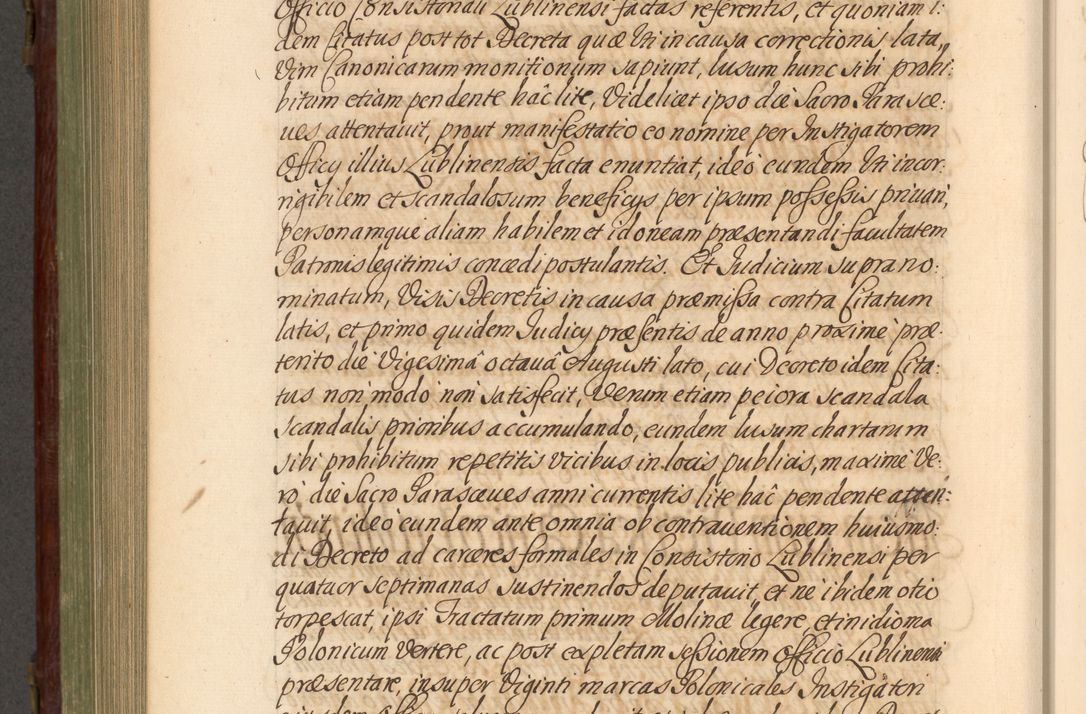 Officio Consistoriali Lublinensi factas referentis, et quoniam i:
dem Citatus post tot Decreta quæ Uti in causa correctionis lata,
Vim Canonicarum monitionum sapiunt, lusum hunc sibi prohi:
bitum etiam pendente hâc lite, Videlicet ipso die Sacro Parasce:
ues attentauit, prout manifestatio eo nomine per Instigatorem
Officij illius Lublinensis facta enuntiat, ideò eundem Uti incor:
rigibilem et scandalosum beneficijs per ipsum possessis priuari,
personamque aliam habilem et idoneam præsentandi facultatem
Patronis legitimis concædi postulantis. Et Judicium supra no:
minatum, Visis Decretis in causa præmissa contra Citatum
latis, et primo quidem Judicij præsentis de anno proxime præ:
terito die Vigesimâ octauâ Augusti lato, cui Decreto idem Cita:
tus non modo non satisfecit, Verum etiam peiora scandala
scandalis prioribus accumulando, eundem lusum chartarum
sibi prohibitum repetitis vicibus in locis publicis, maxime Ve:
rò die Sacro Parasceues anni currentis lite hâc pendente atten:
tauit, ideò eundem ante omnia ob contrauentionem huiusmo:
di Decreto ad carceres formales in Consistorio Lublinensi per
quatuor septimanas sustinendos deputauit, et ne ibidem otio
torpescat, ipsi Tractatum primum Molinæ legere, et in idioma
Polonicum Vertere, ac post expletam sessionem Officio Lublinensi
præsentare, insuper Viginti marcas Polonicales Instigatori